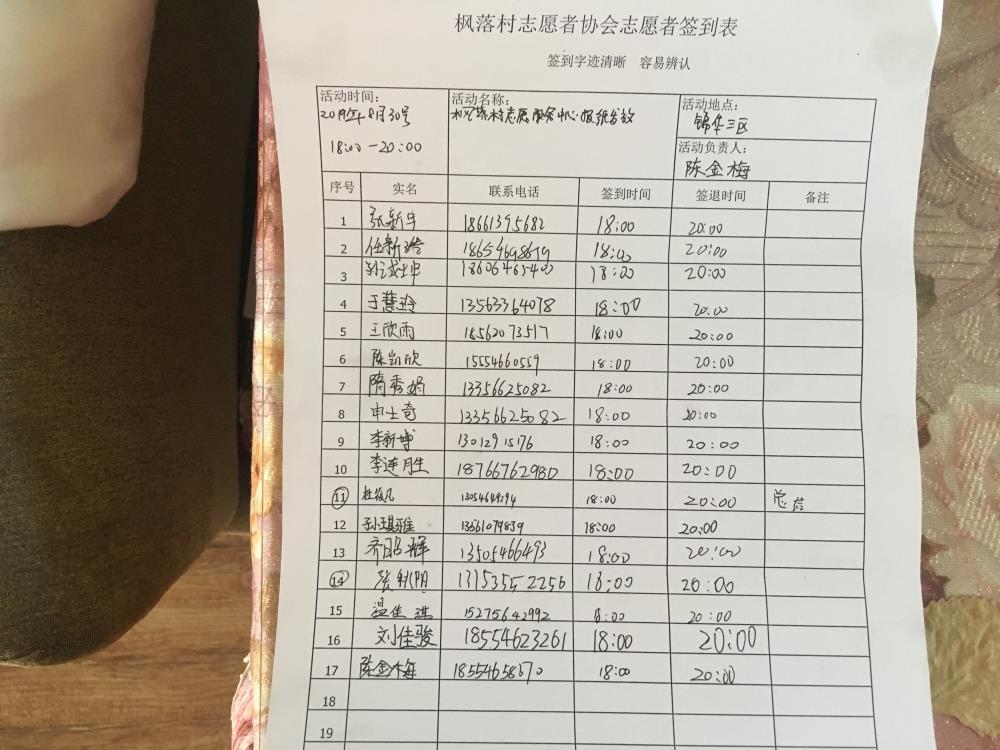 枫落村志愿者协会志愿者签到表
签到字迹清晰 容易辨认
活动时间: 活动名称: 活动地点:
8月30号 志愿服务中心·报纸发放 锦华三区
18:00-20:00 活动负责人:
陈金梅
序号 实名 联系电话 签到时间 签退时间 备注
1 张新宇 18661395682 18:00 20:00
2 任新 18654698679 18:00 20:00
3 18:00 20:00
4 于慧玲 13563364078 18:00 20:00
5 王欣雨 18562073517 18:00 20:00
6 陈凯欣 15554660559 18:00 20:00
7 隋秀娟 13356625082 18:00 20:00
8 申士奇 13356625082 18:00 20:00
9 李新博 18:00 20:00
10 李连生 18766762980 18:00 20:00
11 18:00 20:00
12 孙琪雅 13561079839 18:00 20:00
13 齐昭辉 13505466493 18:00 20:00
14 张 18:00 20:00
15 温佳琪 15275642992 8:00 20:00
16 刘佳骏 18554623261 18:00 20:00
17 陈金梅 18554658670 18:00 20:00
18
19